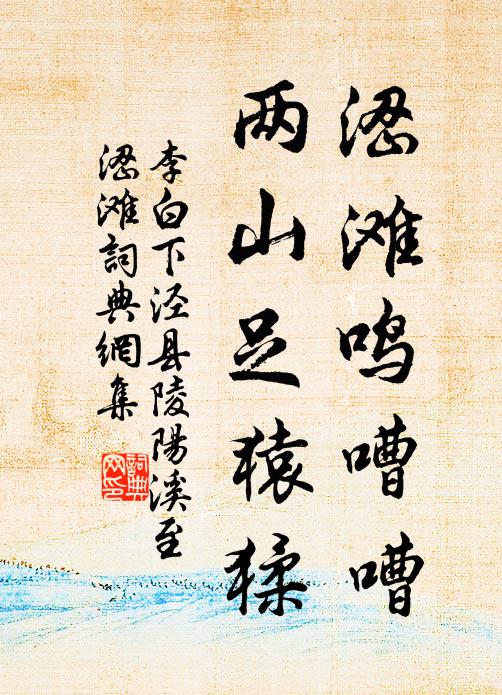 涩滩鸣嘈嘈
两山足猿猱
李白下泾县陵陽溪至
涩滩詞典網集
詞典网印